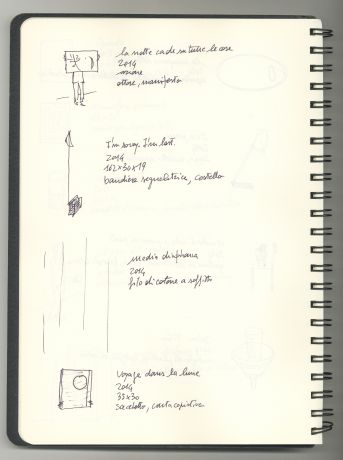 la notte cade su tutte le cose
2014
azione
attore, manifesto
I'm sorry. I'm lost.
2014
162x30x19
bandiera segnaletica, coltello
media
2014
filo di cotone a soffitto
Voyage dans la lune
2014
35x30
sacchetto, carta copiativa